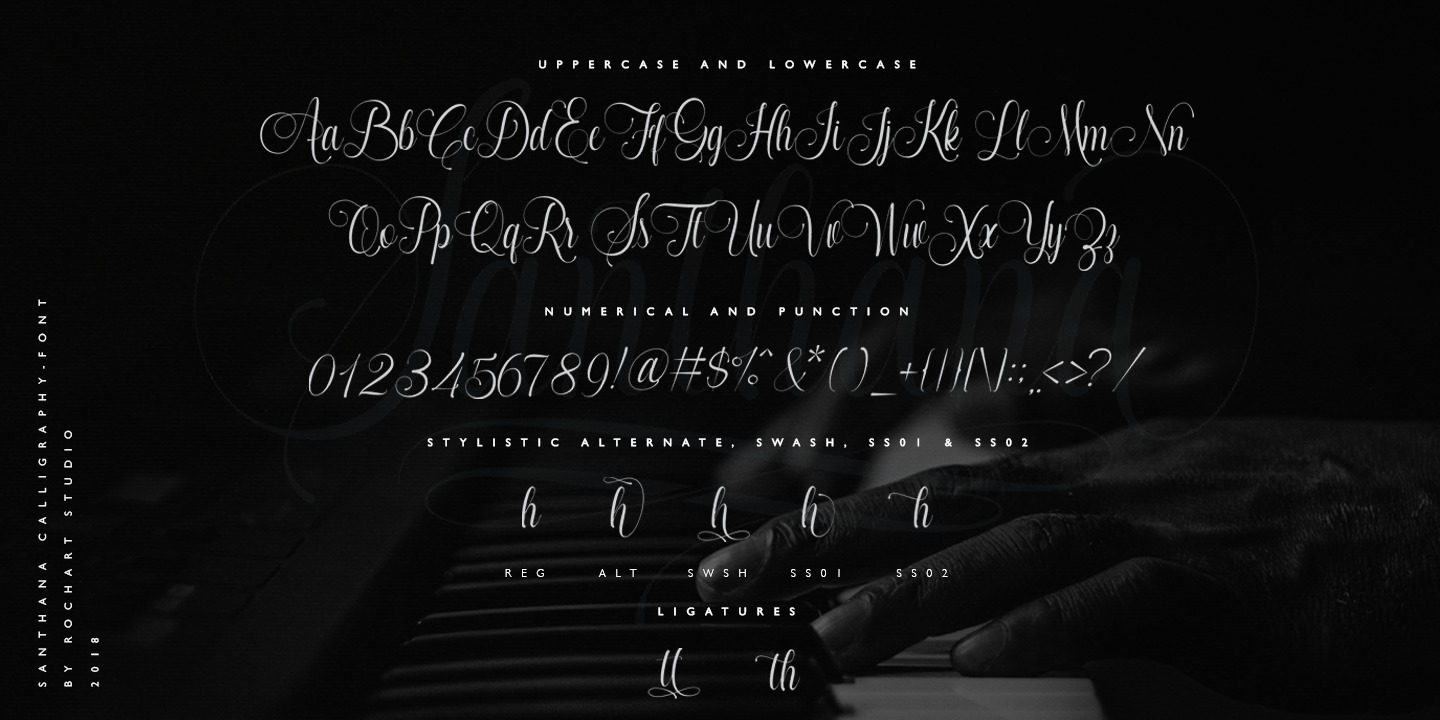 UPPERCASE AND LOWERCASE
AaBbCcDdEeFfGgHhIiJjKkLlMmNn
OoPpQqRrSsTtUuVvWwXxYyZz
NUMERICAL AND PUNCTION
0123456789!@#$%^&*()_+{|}[\]:;,.<>?/
STYLISTIC ALTERNATE, SWASH, SS01 & SS02
h h h h h
REG ALT SWSH SS01 SS02
LIGATURES
tt th
SANTHANA CALLIGRAPHY-FONT
BY ROCHART STUDIO
2018
Santhana